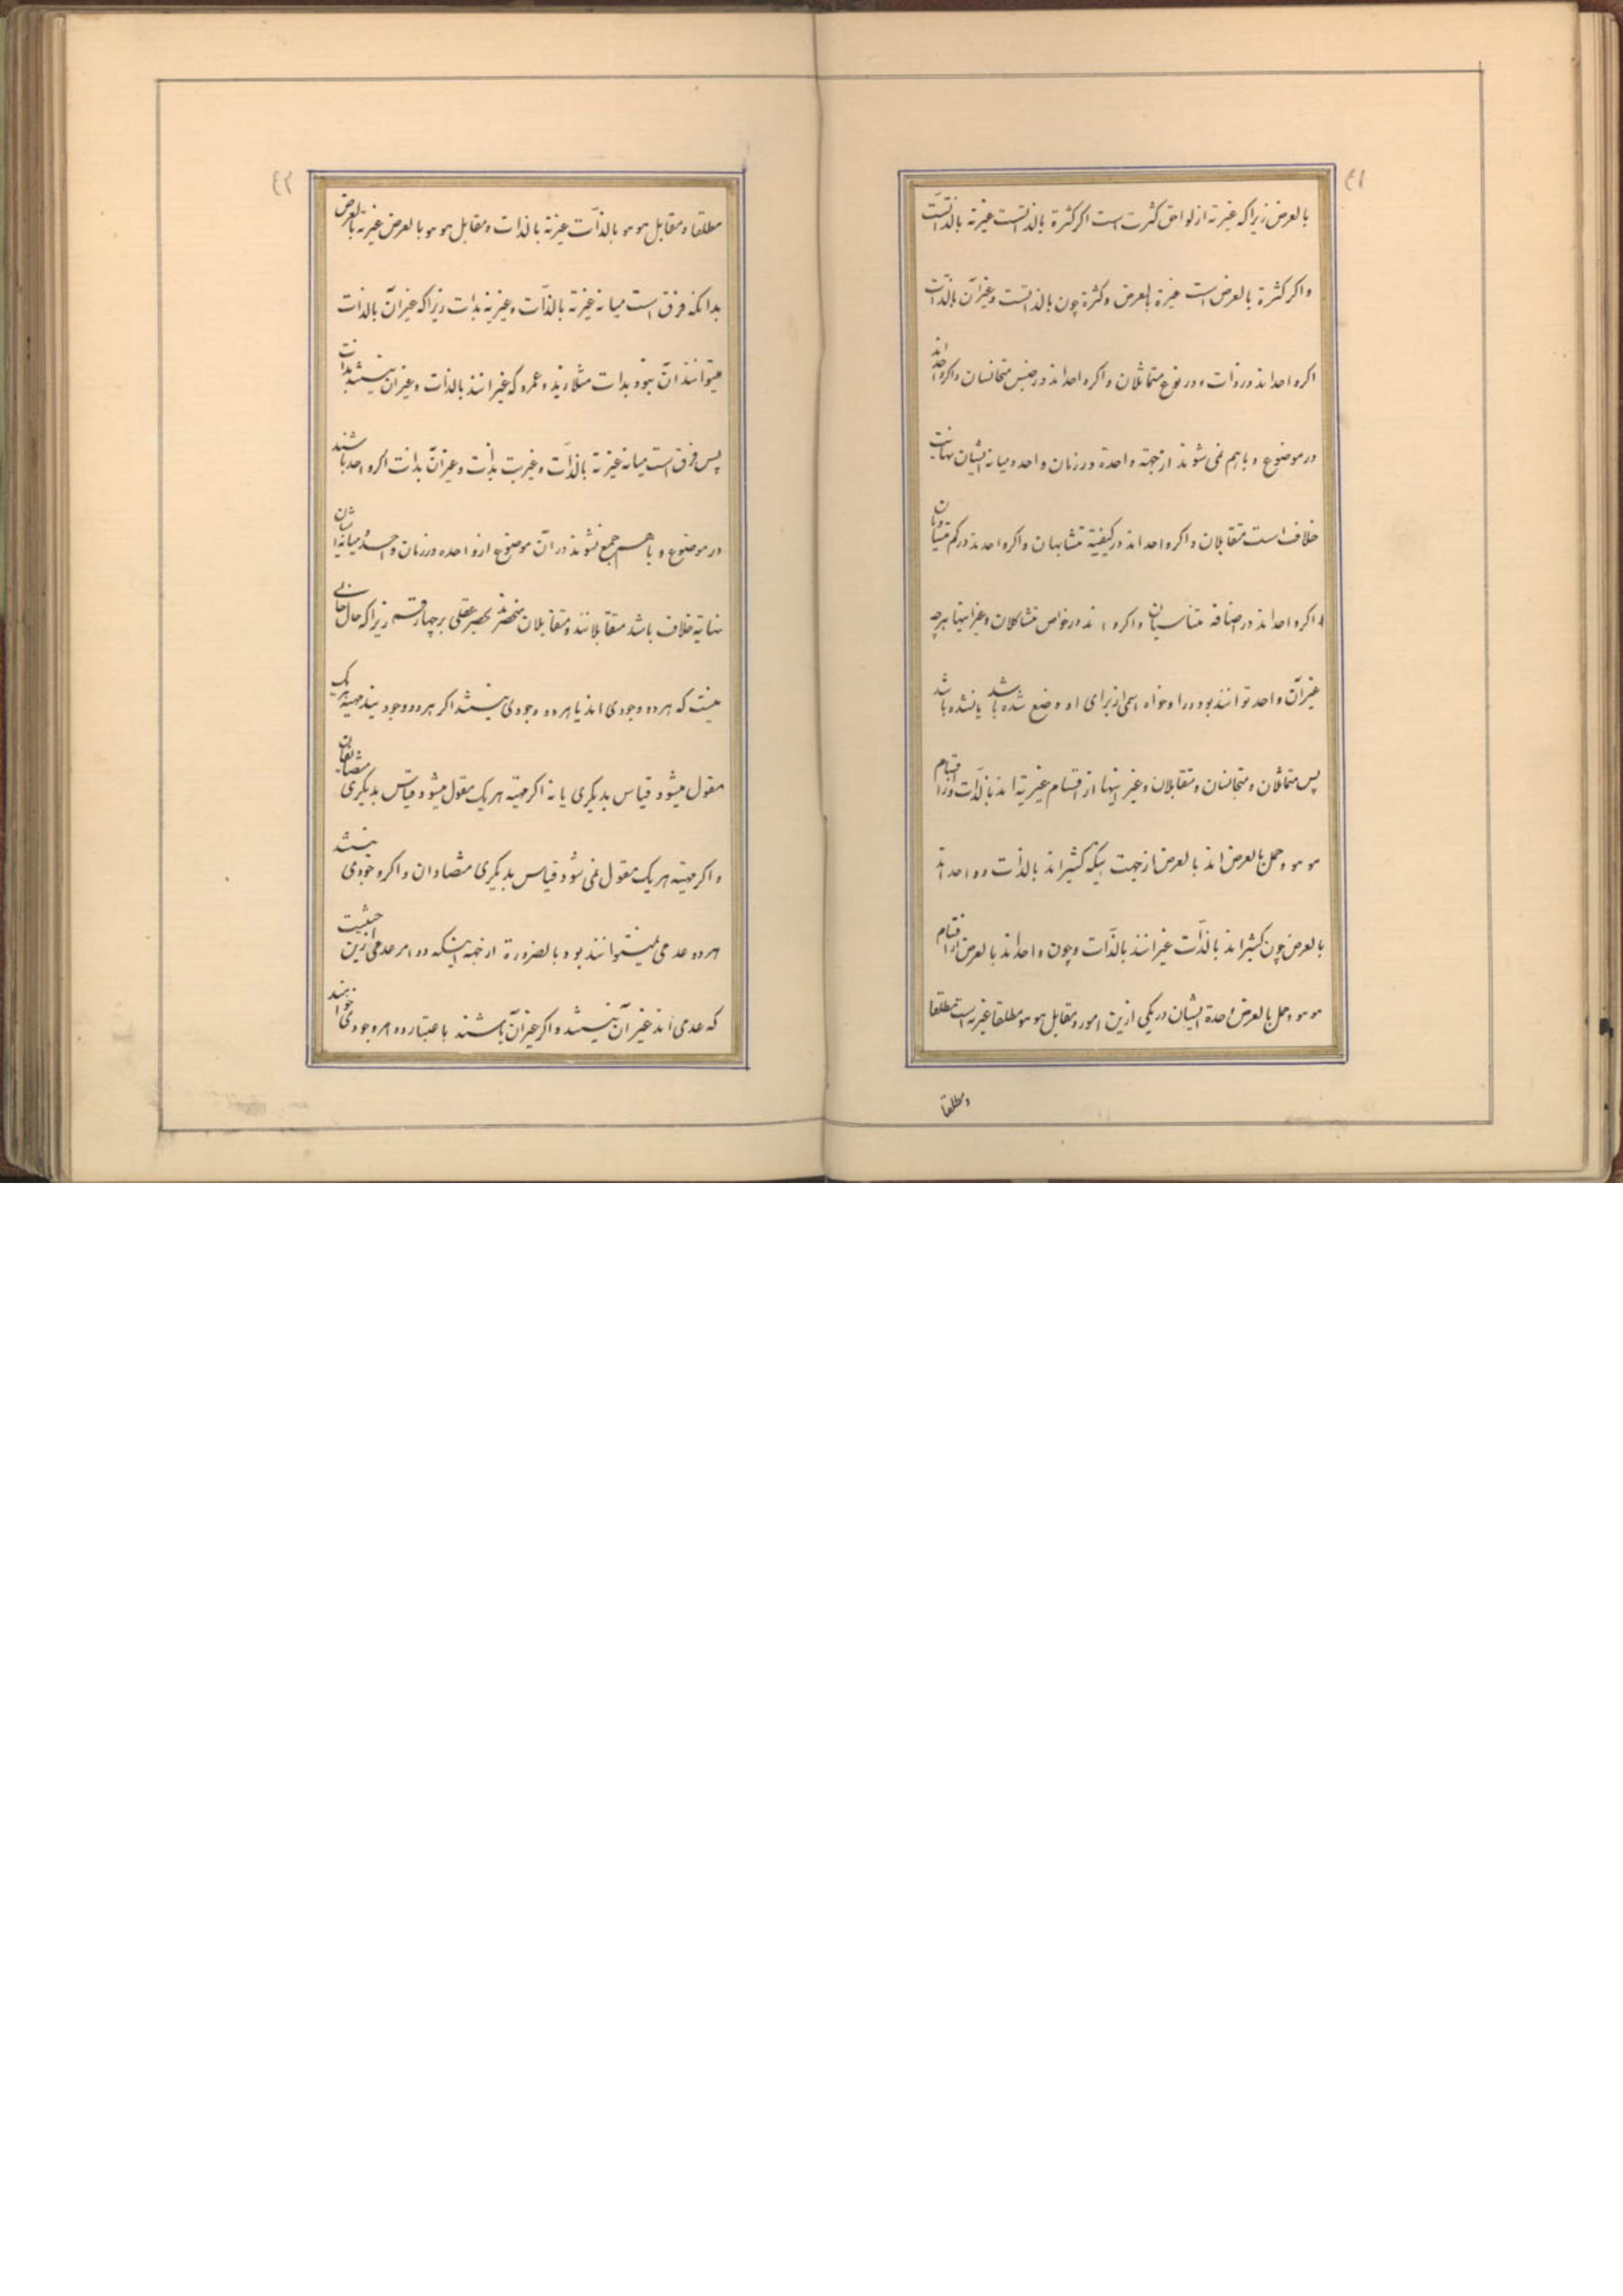 ۴۱
بالعرض زیراکه غیریة از لواحق کثرت است اکر کثرة بالذاتست غیریة بالذاتست
واکر کثرة بالعرض است غیریة بالعرض وکثرة چون بالذاتست وغیرآن بالذات
اکر واحداند در ذات ودر نوع متماثلان واکر واحداند در جنس متجانسان واکر واحداند
در موضوع وباهم نمی شوند از جهة واحدة در زمان واحد ومیانه ایشان نهایت
خلاف است متقابلان واکر واحداند در کیفیة متشابهان واکر واحدند در کم متساویان
واکر واحداند در اضافه متناسبان واکر در خواص متشاکلان وغیر اینها هرچه
غیرآن واحد توانند بود در او خواه اسمی از برای او وضع شده باشد یا نشده باشد
پس متماثلان ومتجانسان ومتقابلان وغیر اینها از اقسام غیریة اند بالذات واز اقسام
هوهو وحمل بالعرض اند بالعرض از جهت اینکه کثیراند بالذات وواحداند
بالعرض چون کثیراند بالذات غیرانند بالذات وچون واحداند بالعرض از اقسام
هوهو وحمل بالعرض وحدة ایشان در یکی ازین امور ومقابل هوهو مطلقا غیریة است مطلقا
ومطلقا
۴۲
مطلقا ومقابل هوهو بالذات غیریة بالذات ومقابل هوهو بالعرض غیریة بالعرض
بدانکه فرق است میانه غیریة بالذات وغیریة بذات زیراکه غیرآن بالذات
میتوانند آن بود بذات مثلا زید وعمرو که غیرانند بالذات وغیران نیستند بذات
پس فرق است میانه غیریة بالذات وغیریت بذات وغیرآن بذات اکر واحد باشند
در موضوع وباهم جمع نشوند در آن موضوع از واحده در زمان واحد ومیانه ایشان
نهایة خلاف باشد متقابلانند ومتقابلان منحصرند بحصر عقلی بر چهار قسم زیراکه خالی
نیست که هر دو وجودی اند یا هر دو وجودی نیستند اکر هر دو وجودیند مهیة هر یک
مقول میشود قیاس بدیکری یا نه اکر مهیة هر یک مقول میشود قیاس بدیکری متضایفان
واکر مهیة هر یک مقول نمی شود قیاس بدیکری متضادان واکر وجودی نیستند
هر دو عدمی نیتوانند بود بالضرورة از جهة اینکه دو امر عدمی ازین حیثیت
که عدمی اند غیر آن نیستند واکر غیرآن باشند باعتبار دو امر وجودی خواهند